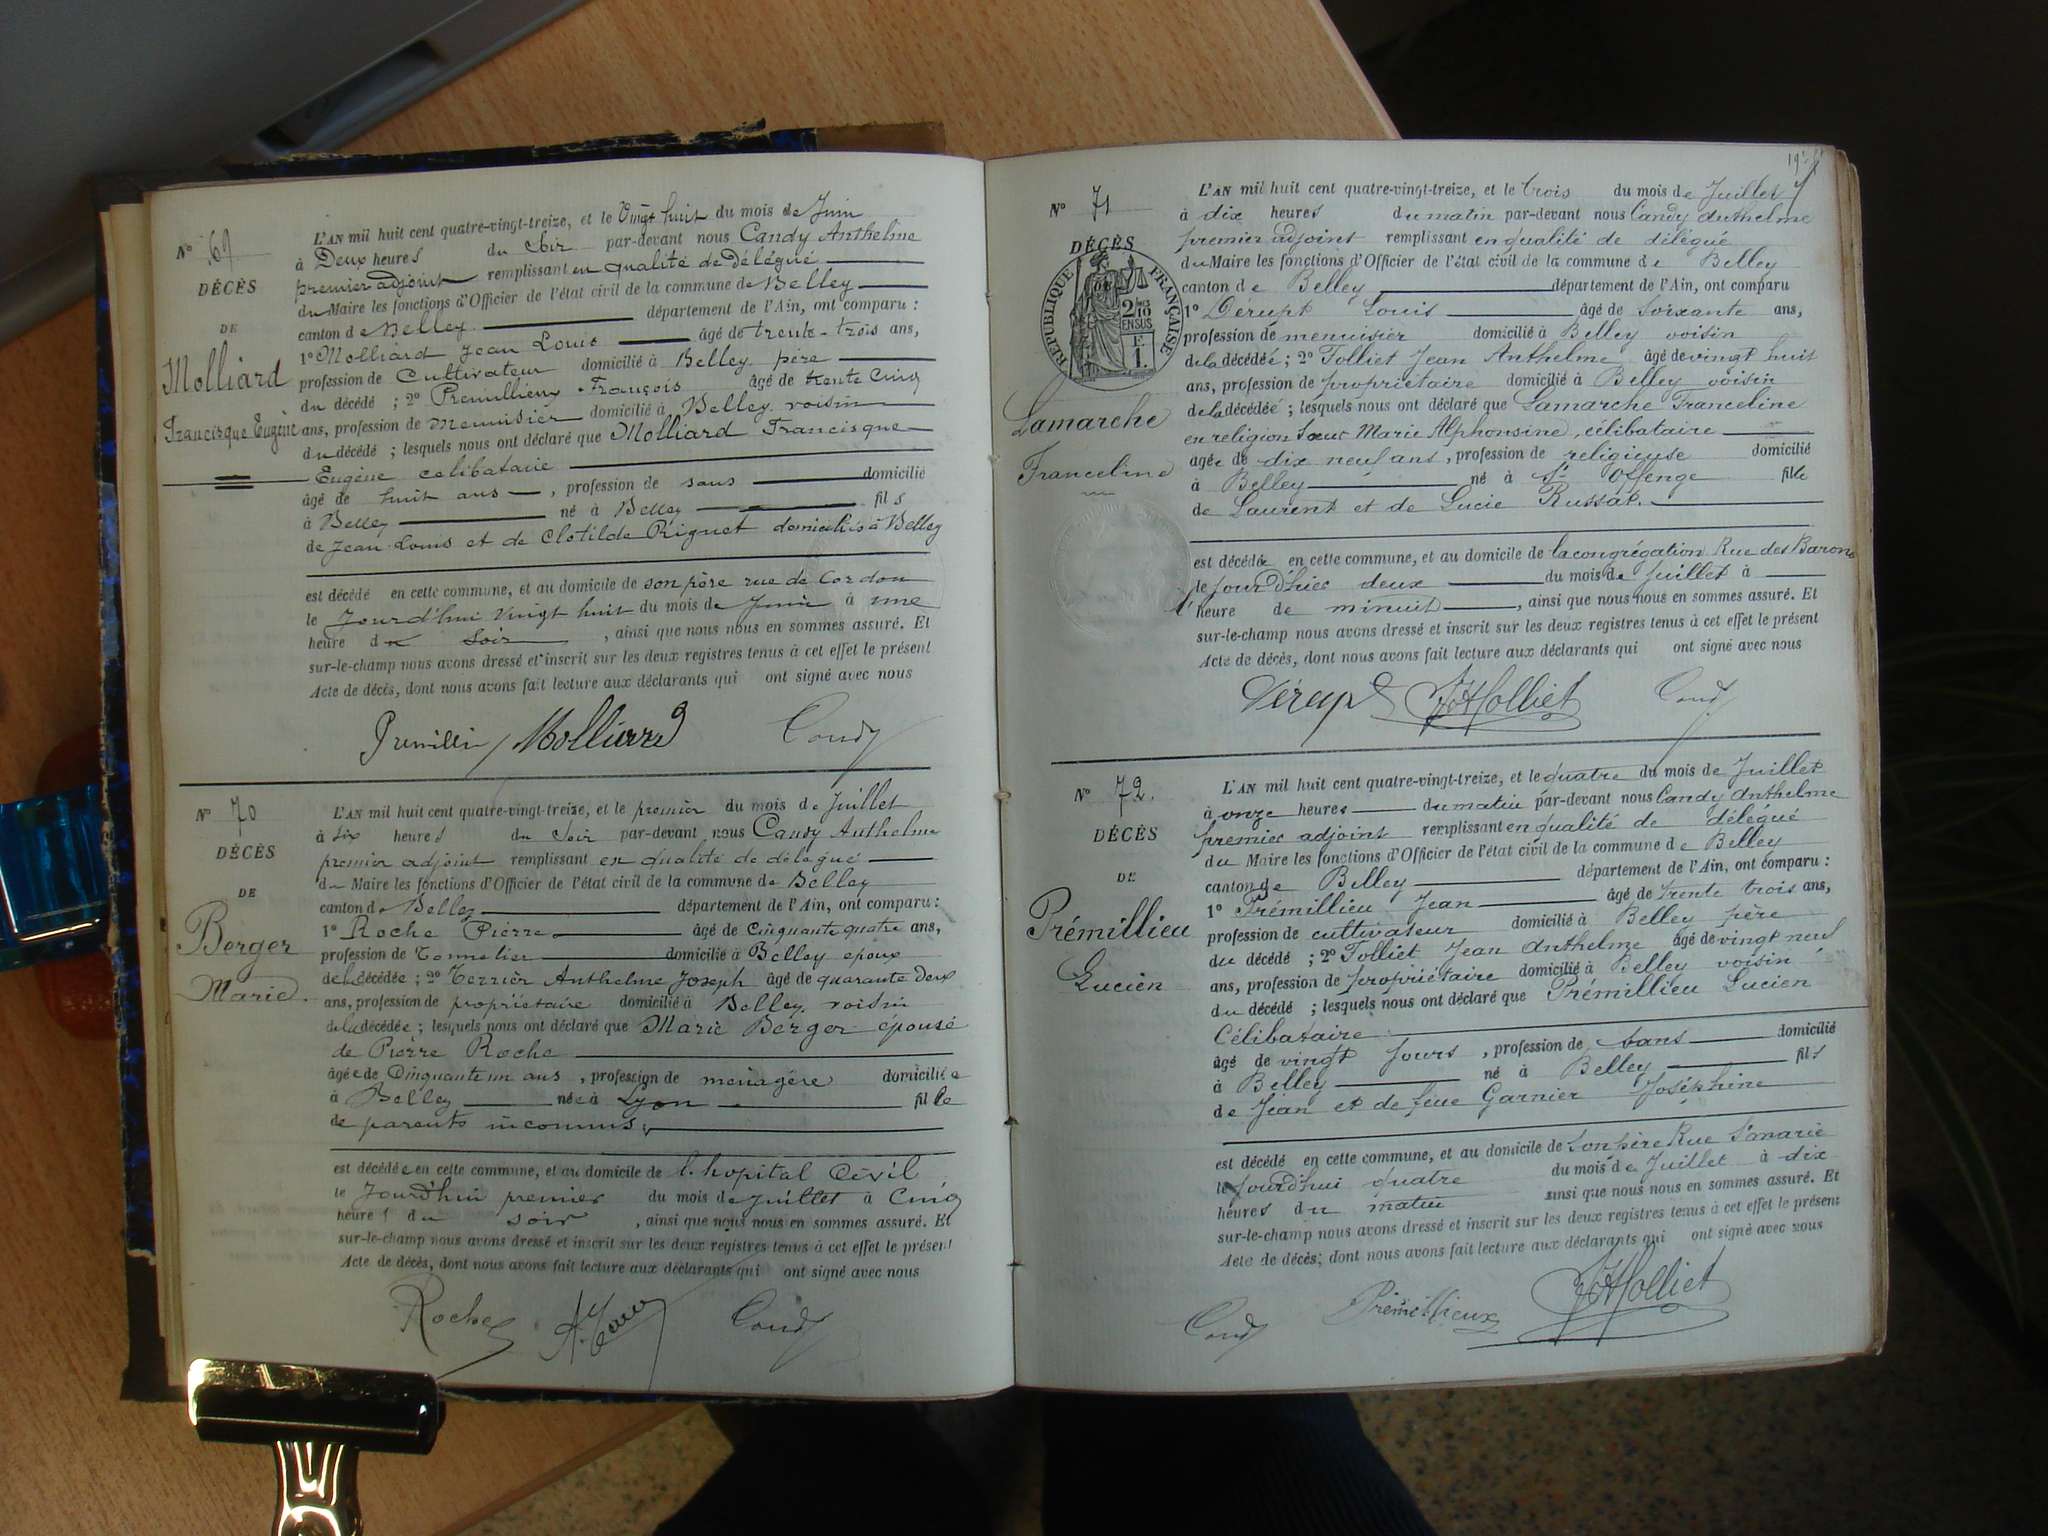 N° 69
DÉCÈS
DE
Molliard
Francisque Eugène
L'AN mil huit cent quatre-vingt-treize, et le Vingt huit du mois de Juin
à Deux heures du Soir par-devant nous Candy Anthelme
premier adjoint remplissant en qualité de Délégué
du Maire les fonctions d'Officier de l'état civil de la commune de Belley
canton de Belley département de l'Ain, ont comparu :
1° Molliard Jean Louis âgé de trente-trois ans,
profession de Cultivateur domicilié à Belley père
du décédé ; 2° Premillieux François âgé de trente Cinq
ans, profession de menuisier domicilié à Belley voisin
du décédé ; lesquels nous ont déclaré que Molliard Francisque
Eugène celibataire
âgé de huit ans , profession de sans domicilié
à Belley né à Belley fils
de Jean Louis et de Clotilde Piguet domiciliés à Belley
est décédé en cette commune, et au domicile de son père rue de Cordon
le Jourd'hui Vingt huit du mois de Juin à une
heure du Soir , ainsi que nous nous en sommes assuré. Et
sur-le-champ nous avons dressé et inscrit sur les deux registres tenus à cet effet le présent
Acte de décès, dont nous avons fait lecture aux déclarants qui ont signé avec nous
Molliard Candy
N° 70
DÉCÈS
DE
Berger
Marie
L'AN mil huit cent quatre-vingt-treize, et le premier du mois de Juillet
à six heures du Soir par-devant nous Candy Anthelme
premier adjoint remplissant en qualité de délégué
du Maire les fonctions d'Officier de l'état civil de la commune de Belley
canton de Belley département de l'Ain, ont comparu :
1° Roche Pierre âgé de Cinquante quatre ans,
profession de Tonnelier domicilié à Belley epoux
de la décédée ; 2° Terrier Anthelme Joseph âgé de quarante deux
ans, profession de propriétaire domicilié à Belley voisin
de la décédée ; lesquels nous ont déclaré que Marie Berger épouse
de Pierre Roche
âgée de Cinquante un ans , profession de menagère domiciliée
à Belley née à Lyon fille
de parents inconnus
est décédée en cette commune, et au domicile de l'hopital Civil
le Jourd'hui premier du mois de Juillet à Cinq
heures du soir , ainsi que nous nous en sommes assuré. Et
sur-le-champ nous avons dressé et inscrit sur les deux registres tenus à cet effet le présent
Acte de décès, dont nous avons fait lecture aux déclarants qui ont signé avec nous
Roche Candy
N° 71
DÉCÈS
RÉPUBLIQUE FRANÇAISE
2/10
EN SUS
Lamarche
Franceline
L'AN mil huit cent quatre-vingt-treize, et le trois du mois de Juillet
à dix heures du matin par-devant nous Candy Anthelme
premier adjoint remplissant en qualité de délégué
du Maire les fonctions d'Officier de l'état civil de la commune de Belley
canton de Belley département de l'Ain, ont comparu
1° Dérupt Louis âgé de Soixante ans,
profession de menuisier domicilié à Belley voisin
de la décédée ; 2° Folliet Jean Anthelme âgé de vingt huit
ans, profession de propriétaire domicilié à Belley voisin
de la décédée ; lesquels nous ont déclaré que Lamarche Franceline
en religion Sœur Marie Alphonsine, célibataire
agée de dix neuf ans, profession de religieuse domicilié
à Belley né à St Offenge fille
de Laurent et de Lucie Russat.
est décédée en cette commune, et au domicile de la congrégation Rue des Barons
le jour d'hier deux du mois de Juillet à
l'heure de minuit , ainsi que nous nous en sommes assuré. Et
sur-le-champ nous avons dressé et inscrit sur les deux registres tenus à cet effet le présent
Acte de décès, dont nous avons fait lecture aux déclarants qui ont signé avec nous
Dérupt Candy
N° 72.
DÉCÈS
DE
Prémillieu
Lucien
L'AN mil huit cent quatre-vingt-treize, et le quatre du mois de Juillet
à onze heures du matin par-devant nous Candy Anthelme
premier adjoint remplissant en qualité de délégué
du Maire les fonctions d'Officier de l'état civil de la commune de Belley
canton de Belley département de l'Ain, ont comparu :
1° Prémillieu Jean âgé de trente trois ans,
profession de cultivateur domicilié à Belley père
du décédé ; 2° Folliet Jean Anthelme âgé de vingt neuf
ans, profession de propriétaire domicilié à Belley voisin
du décédé ; lesquels nous ont déclaré que Prémillieu Lucien
Célibataire
âgé de vingt jours , profession de sans domicilié
à Belley né à Belley fils
de Jean et de feue Garnier Joséphine
est décédé en cette commune, et au domicile de Son père Rue Ste marie
le jourd'hui quatre du mois de Juillet à dix
heures du matin ainsi que nous nous en sommes assuré. Et
sur-le-champ nous avons dressé et inscrit sur les deux registres tenus à cet effet le présent
Acte de décès; dont nous avons fait lecture aux déclarants qui ont signé avec nous
Candy Prémillieux